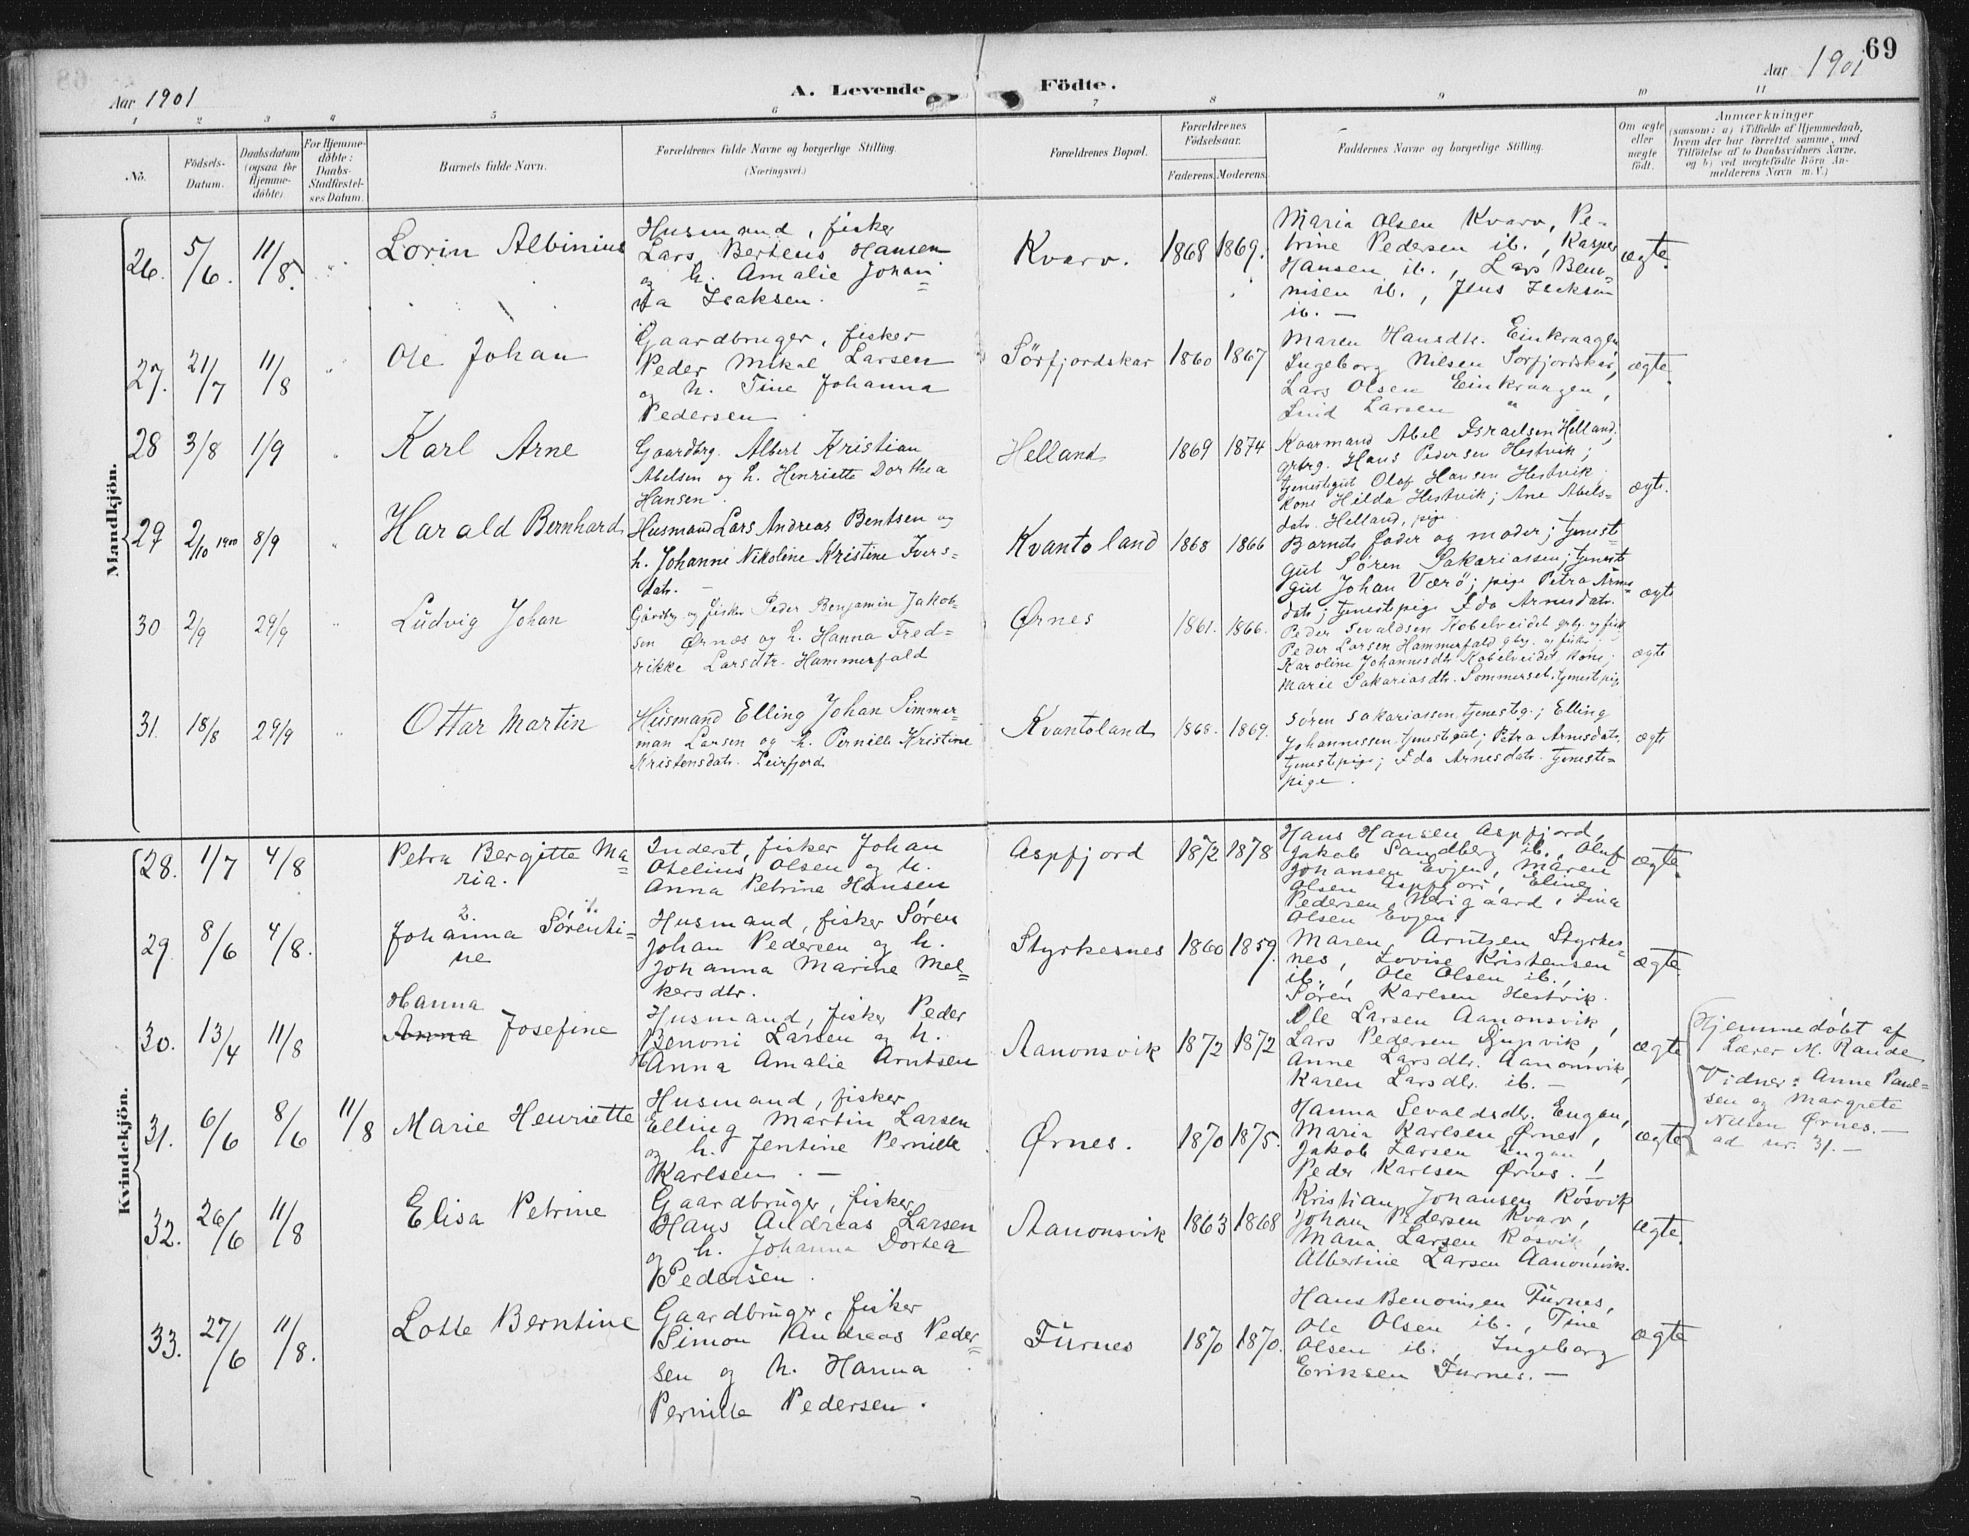 69
Aar 1901
A. Levende Födte.
Aar 1901
1 2 3 4 5 6 7 8 9 10 11
No.
Födsels-
Datum.
Daabsdatum
(ogsaa for
Hjemme-
döbte)
For Hjemme-
döbte:
Daabs-
Stadfæstel-
ses Datum.
Barnets fulde Navn.
Forældrenes fulde Navne og borgerlige Stilling.
(Næringsvei.)
Forældrenes Bopæl.
Forældrenes
Födselsaar.
Faderens. Moderens.
Faddernes Navne og borgerlige Stilling.
Om ægte
eller
uægte
födt.
Anmærkninger
(saasom: a) i Tilfælde af Hjemmedaab,
hvem der har forrettet samme, med
Tilföielse af to Daabsvidners Navne,
og b) ved uægtefödte Börn An-
melderens Navn m. V.)
Mandkjön.
26. 5/6. 11/8. Lorin Albinius
Husmand, fisker
Lars Berteus Hansen
og h. Amalie Johan
na Isaksen.
Kvarv. 1868 1869.
Maria Olsen Kvarv, Pe-
trine Pedersen ib., Kasper
Hansen ib., Lars Beno-
nisen ib., Jens Isaksen
ib. —
ægte.
27. 21/7 11/8 Ole Johan
Gaardbruger, fisker
Peder Mikal Larsen
og h. Tine Johanna
Pedersen
Sörfjordskar 1860 1867
Maren Hansdtr. Einkraagen
Ingeborg Nilsen Sörfjordskar,
Lars Olsen Einkraagen,
Larsen "
ægte.
28 3/8 1/9 Karl Arne
Gaardbrg. Albert Kristian
Abelsen og h. Henriette Dorthea
Hansen.
Helland 1869 1874
Kaarmand Abel Israelsen Helland;
grbrg. Hans Pedersen Hestvik;
tjenestegut Olaf Hansen Hestvik.
kone Hilda Hestvik; Ane Abels-
datr. Helland, pige
ægte.
29 2/10 1900 8/9 Harald Bernhard
Husmand Lars Andreas Bentsen og
h. Johanne Nikoline Kristine Ivers-
datr. —
Kvantoland 1868 1866
Barnets fader og moder; tjeneste-
gut Søren Sakariassen; tjeneste
gut Johan Værö; pige Petra Arnes-
datr; tjenestepige Ida Arnesdatr.
ægte
30 2/9 29/9 Ludvig Johan
Gårdbr. og fisker Peder Benjamin Jakob-
sen Ørnæs og h. Hanna Fred-
rikke Larsdtr. Hammerfald
Ørnes 1861. 1866.
Peder Sevaldsen Kobelveidet grbr. og fisk.
Peder Larsen Hammerfald gbr. og fisker.
Karoline Johannesdtr. Kobelveidet kone;
Marie Sakariasdtr. Sommerset. tjenestepige
ægte
31. 18/8 29/9 Ottar Martin
Husmand Elling Johan Simmer-
man Larsen og h. Pernille Kristine
Kristensdatr. Leirfjord
Kvantoland 1868. 1869.
Søren Sakariassen tjenesteg.; Elling
Johannessen tjenestegut; Petra Arnesdatr.
tjenestepige; Ida Arnesdatr. tjeneste-
pige.
ægte
Kvindekjön.
28. 1/7 4/8 Petra Bergitte Ma
ria.
Inderst, fisker Johan
Otelius Olsen og h.
Anna Petrine Hansen
Aspfjord 1872 1878
Hans Hansen Aspfjord,
Jakob Sandberg ib., Oluf
Johansen Evjen, Maren
Olsen Aspfjord, Eline
Pedersen Nerigaard, Lina
Olsen Evjen.
ægte.
29. 8/6 4/8. Johanna Sörenti-
ne
Husmand, fisker Sören
Johan Pedersen og h.
Johanna Marine Mel-
kersdtr.
Styrkesnes 1860 1859.
Maren Arntsen Styrkes-
nes, Lovise Kristensen
ib., Ole Olsen ib.,
Sören Karlsen Hestvik.
ægte
30. 13/4 11/8 Hanna
Anna Josefine
Husmand, fisker Peder
Benoni Larsen og h.
Anna Amalie Arntsen
Aanonsvik 1872 1872
Ole Larsen Aanonsvik,
Lars Pedersen Djupvik,
Anne Larsdtr. Aanonsvik,
Karen Larsdtr. ib. —
ægte
31. 6/6 8/6 11/8 Marie Henriette
Husmand, fisker
Elling Martin Larsen
og h. Jentine Pernille
Karlsen. —
Ørnes. 1870 1875.
Hanna Sevaldsdtr. Engan,
Maria Karlsen Ørnes,
Jakob Larsen Engan
Peder Karlsen Ørnes. —
ægte
Hjemmedöbt af
Lærer M. Rande
Vidner: Anne Paul-
sen og Margrete
Nilsen Ørnes. —
ad nr. 31. —
32. 26/6 11/8 Elisa Petrine
Gaardbruger, fisker
Hans Andreas Larsen
og h. Johanna Dortea
Pedersen.
Aanonsvik 1863 1868
Kristian Johansen Rösvik
Johan Pedersen Kvarv,
Maria Larsen Rösvik,
Albertine Larsen Aanonsvik.
ægte.
33. 27/6 11/8. Lotte Berntine
Gaardbruger, fisker
Simon Andreas Peder-
sen og h. Hanna
Pernille Pedersen.
Furnes 1870 1870.
Hans Benonisen Furnes,
Ole Olsen ib., Tine
Olsen ib., Ingeborg
Eriksen Furnes. —
ægte